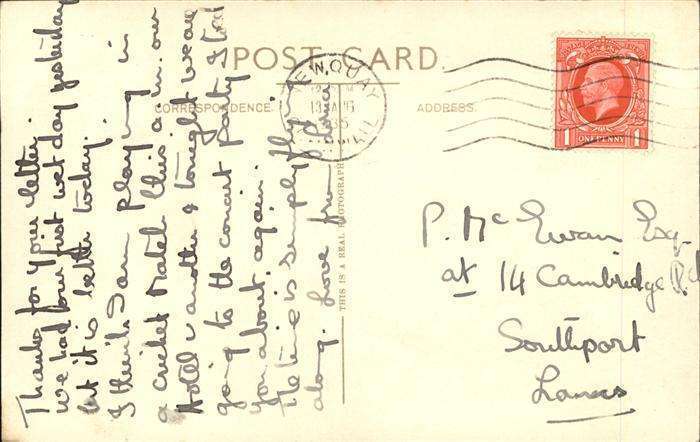 POST CARD.
CORRESPONDENCE.
ADDRESS.
NEWQUAY
13 AUG
35
ONE PENNY
1
1
THIS IS A REAL PHOTOGRAPH
Thanks for your letter.
We had our first wet day yesterday
but it is better today.
I think I am playing in
a cricket match this a.m. our
Hotel v another & tonight we are
going to the concert party I tell
you about again.
The time is simply flying
along. Love from
P. McEwan Esq.
at 14 Cambridge Rd
Southport
Lancs